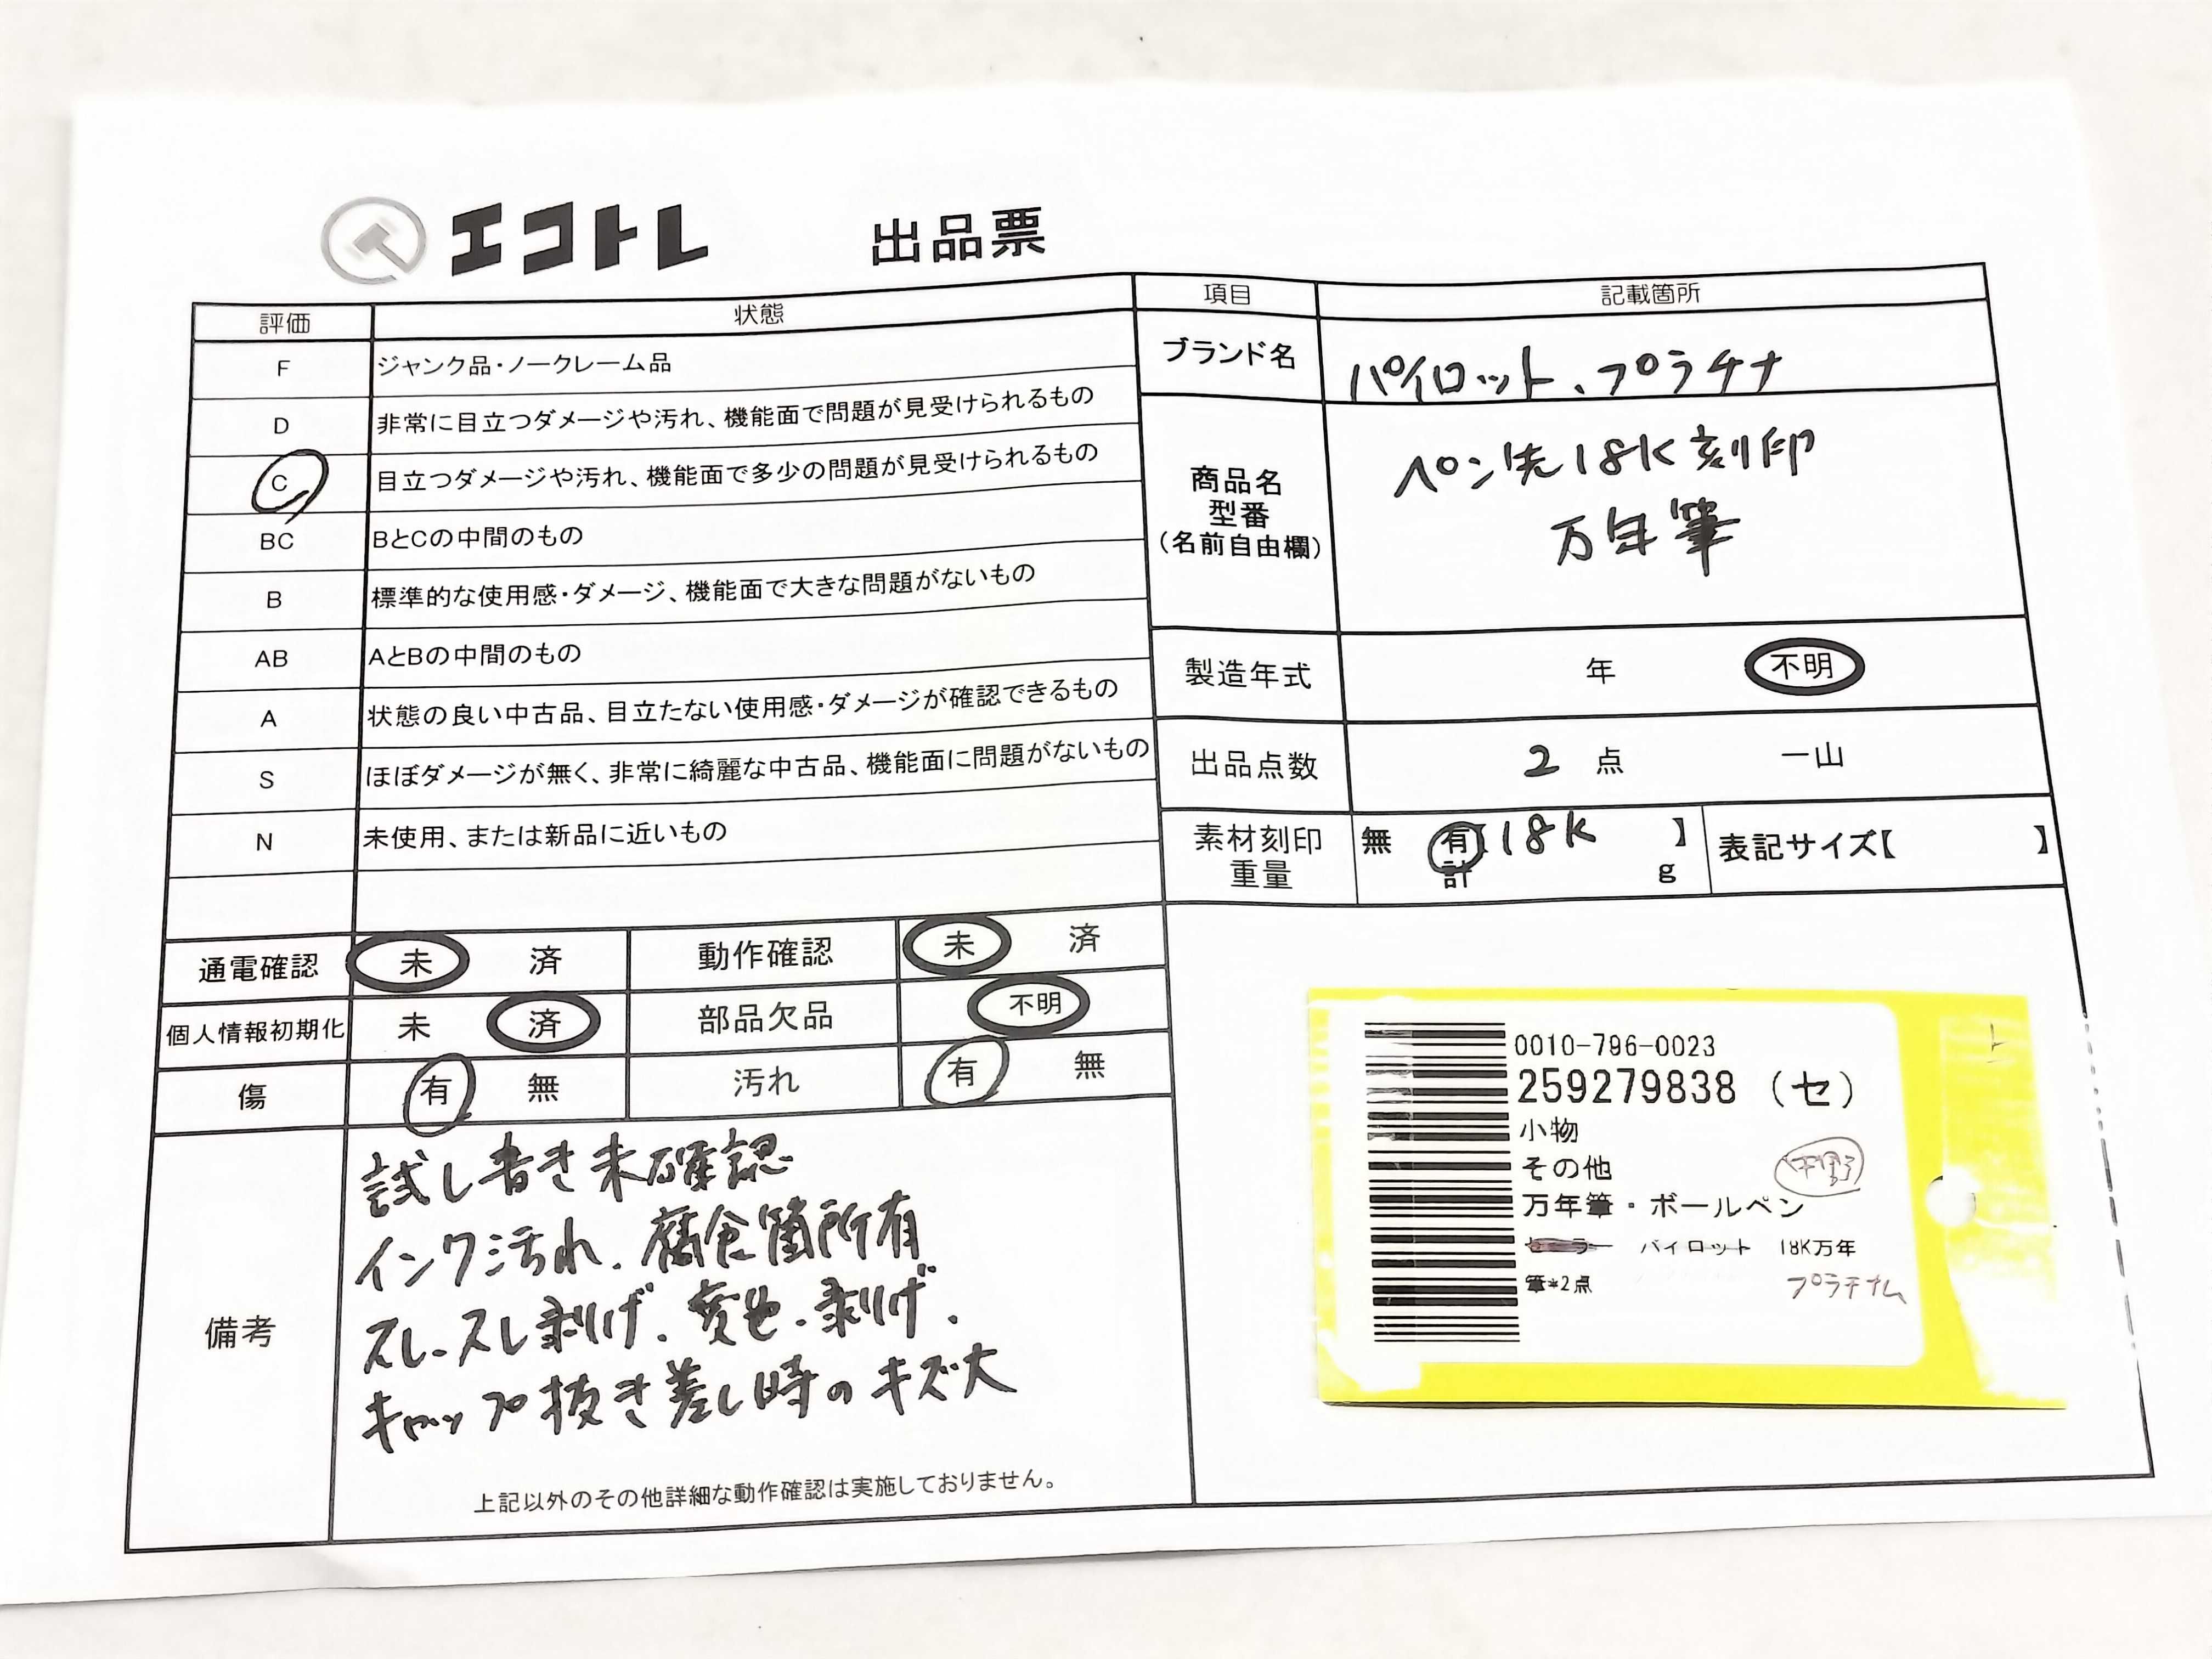 エコトレ 出品票
評価 状態
F ジャンク品・ノークレーム品
D 非常に目立つダメージや汚れ、機能面で問題が見受けられるもの
C 目立つダメージや汚れ、機能面で多少の問題が見受けられるもの
BC BとCの中間のもの
B 標準的な使用感・ダメージ、機能面で大きな問題がないもの
AB AとBの中間のもの
A 状態の良い中古品、目立たない使用感・ダメージが確認できるもの
S ほぼダメージが無く、非常に綺麗な中古品、機能面に問題がないもの
N 未使用、または新品に近いもの
項目 記載箇所
ブランド名 パイロット、プラチナ
商品名
型番
(名前自由欄)
ペン先18K刻印
万年筆
製造年式 年 不明
出品点数 2 点 一山
素材刻印 無 有 18K 】 表記サイズ【 】
重量 計 g
通電確認 未 済 動作確認 未 済
個人情報初期化 未 済 部品欠品 不明
傷 有 無 汚れ 有 無
備考
試し書き未確認
インク汚れ、腐食箇所有
スレ、スレ剥げ、変色、剥げ、
キャップ抜き差し時のキズ大
上記以外のその他詳細な動作確認は実施しておりません。
0010-796-0023
259279838 (セ)
小物
その他
万年筆・ボールペン
パイロット 18K万年
筆*2点 プラチナム